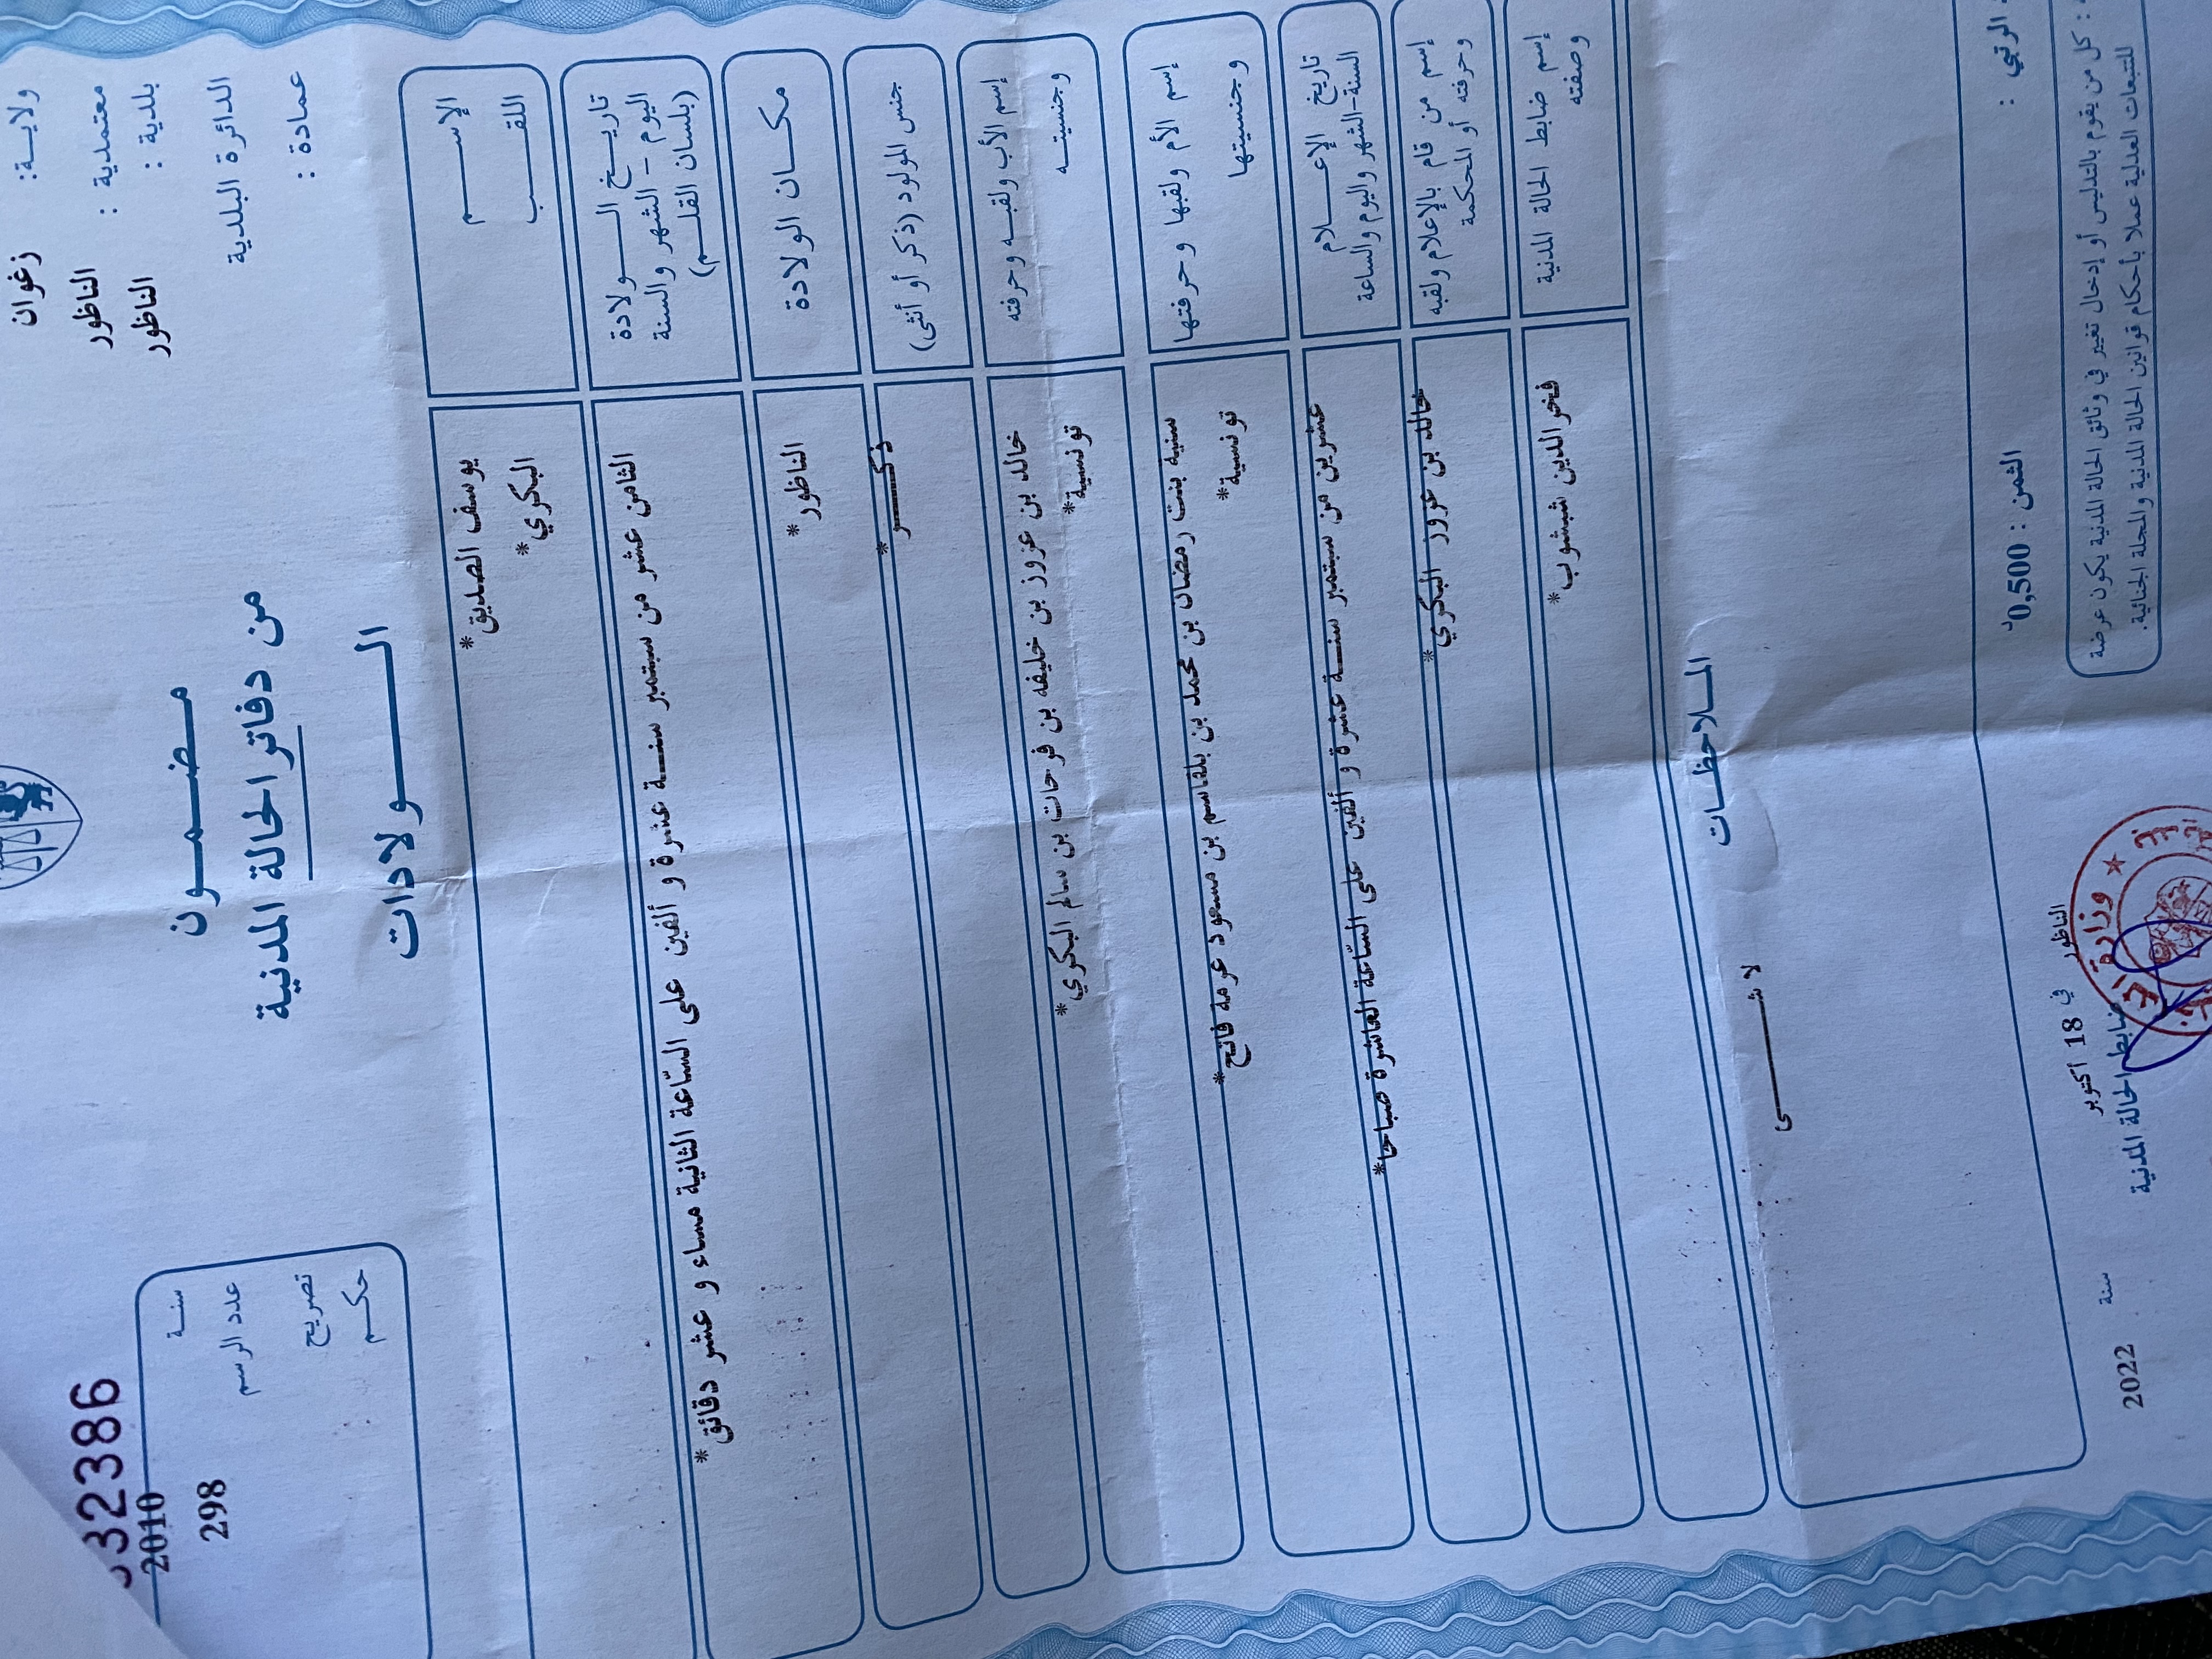 ولايـة: زغوان
معتمدية : الناظور
بلدية : الناظور
الدائرة البلدية
عمادة :
32386
سنـة 2010
عدد الرسم 298
تصريح
حكـم
مـضـمـون
من دفاتر الحالة المدنية
الـولادات
الإسـم يوسف الصديق*
اللقـب البكري*
تاريـخ الـولادة
اليوم - الشهر والسنة
(بلسان القلـم)
الثامن عشر من سبتمبر سنـة عشرة و ألفين على السّاعة الثانية مساء و عشر دقائق*
مكـان الولادة الناظور*
جنس المولود (ذكر أو أنثى) ذكـر*
إسم الأب ولقبـه وحرفته خالد بن عزوز بن خليفه بن فرحات بن سالم البكري*
وجنسيتـه تونسية*
إسم الأم ولقبها وحرفتها سنية بنت رمضان بن محمد بن بلقاسم بن مسعود عرمة فاتح*
وجنسيتها تونسية*
تاريخ الإعـلام
السنة-الشهر واليوم والساعة
عشرين من سبتمبر سنـة عشرة و ألفين على السّاعة العاشرة صباحا*
إسم من قام بالإعلام ولقبه
وحرفته أو المحكمة
خالد بن عزوز البكري*
إسم ضابط الحالة المدنية
وصفته
فخر الدين شبشوب*
المـلاحظـات
لا شـيء
الثمن : 0,500د
: كل من يقوم بالتدليس أو إدخال تغيير في وثائق الحالة المدنية يكون عرضة
للتتبعات العدلية عملا بأحكام قوانين الحالة المدنية والمجلة الجنائية.
الناظور في 18 أكتوبر سنة 2022
ضابط الحالة المدنية
وزارة